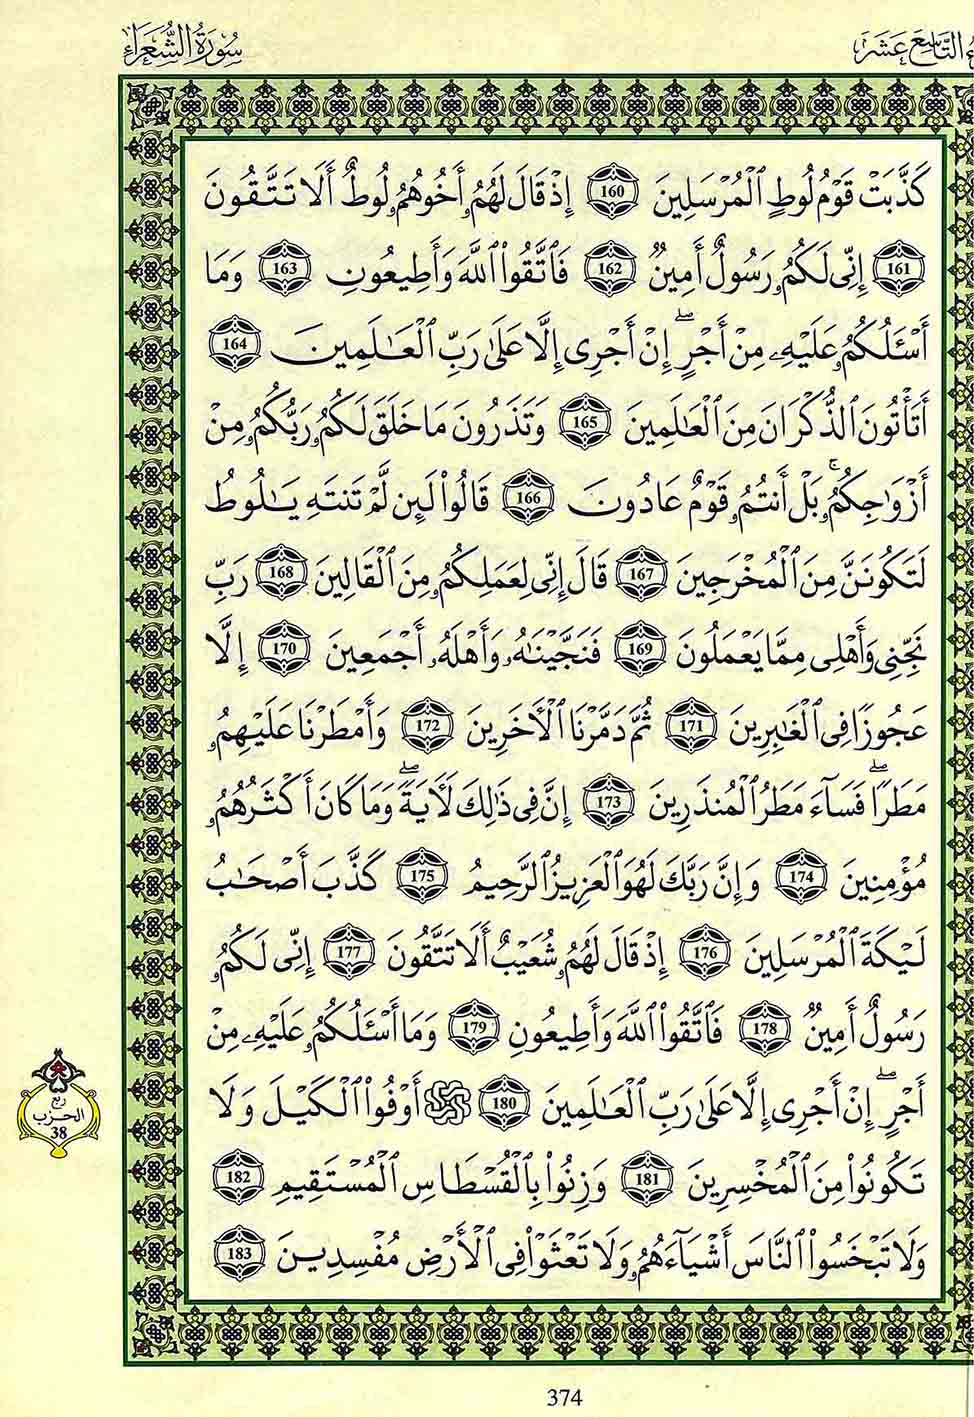 سُورَةُ الشُّعَرَاءِ
التَّاسِعَ عَشَرَ
كَذَّبَتْ قَوْمُ لُوطٍ ٱلْمُرْسَلِينَ 160 إِذْ قَالَ لَهُمُۥٓ أَخُوهُمُۥ لُوطٌ أَلَا تَتَّقُونَ
161 إِنِّى لَكُمُۥ رَسُولٌ أَمِينٌ 162 فَٱتَّقُوا۟ ٱللَّهَ وَأَطِيعُونِ 163 وَمَا
أَسْـَٔلُكُمُۥ عَلَيْهِۦ مِنْ أَجْرٍ ۖ إِنْ أَجْرِى إِلَّا عَلَىٰ رَبِّ ٱلْعَٰلَمِينَ 164
أَتَأْتُونَ ٱلذُّكْرَانَ مِنَ ٱلْعَٰلَمِينَ 165 وَتَذَرُونَ مَا خَلَقَ لَكُمُۥ رَبُّكُمُۥ مِنْ
أَزْوَٰجِكُمُۥ ۚ بَلْ أَنتُمُۥ قَوْمٌ عَادُونَ 166 قَالُوا۟ لَئِن لَّمْ تَنتَهِ يَٰلُوطُ
لَتَكُونَنَّ مِنَ ٱلْمُخْرَجِينَ 167 قَالَ إِنِّى لِعَمَلِكُمُۥ مِنَ ٱلْقَالِينَ 168 رَبِّ
نَجِّنِى وَأَهْلِى مِمَّا يَعْمَلُونَ 169 فَنَجَّيْنَٰهُۥ وَأَهْلَهُۥ أَجْمَعِينَ 170 إِلَّا
عَجُوزًا فِى ٱلْغَٰبِرِينَ 171 ثُمَّ دَمَّرْنَا ٱلْأَخَرِينَ 172 وَأَمْطَرْنَا عَلَيْهِمُۥ
مَطَرًا ۖ فَسَآءَ مَطَرُ ٱلْمُنذَرِينَ 173 إِنَّ فِى ذَٰلِكَ لَأَيَةً ۖ وَمَا كَانَ أَكْثَرُهُمُۥ
مُؤْمِنِينَ 174 وَإِنَّ رَبَّكَ لَهُوَ ٱلْعَزِيزُ ٱلرَّحِيمُ 175 كَذَّبَ أَصْحَٰبُ
لَيْكَةَ ٱلْمُرْسَلِينَ 176 إِذْ قَالَ لَهُمُۥ شُعَيْبٌ أَلَا تَتَّقُونَ 177 إِنِّى لَكُمُۥ
رَسُولٌ أَمِينٌ 178 فَٱتَّقُوا۟ ٱللَّهَ وَأَطِيعُونِ 179 وَمَا أَسْـَٔلُكُمُۥ عَلَيْهِۦ مِنْ
أَجْرٍ ۖ إِنْ أَجْرِى إِلَّا عَلَىٰ رَبِّ ٱلْعَٰلَمِينَ 180 أَوْفُوا۟ ٱلْكَيْلَ وَلَا
تَكُونُوا۟ مِنَ ٱلْمُخْسِرِينَ 181 وَزِنُوا۟ بِٱلْقُسْطَاسِ ٱلْمُسْتَقِيمِ 182
وَلَا تَبْخَسُوا۟ ٱلنَّاسَ أَشْيَآءَهُمُۥ وَلَا تَعْثَوْا۟ فِى ٱلْأَرْضِ مُفْسِدِينَ 183
ربع
الحزب
38
374